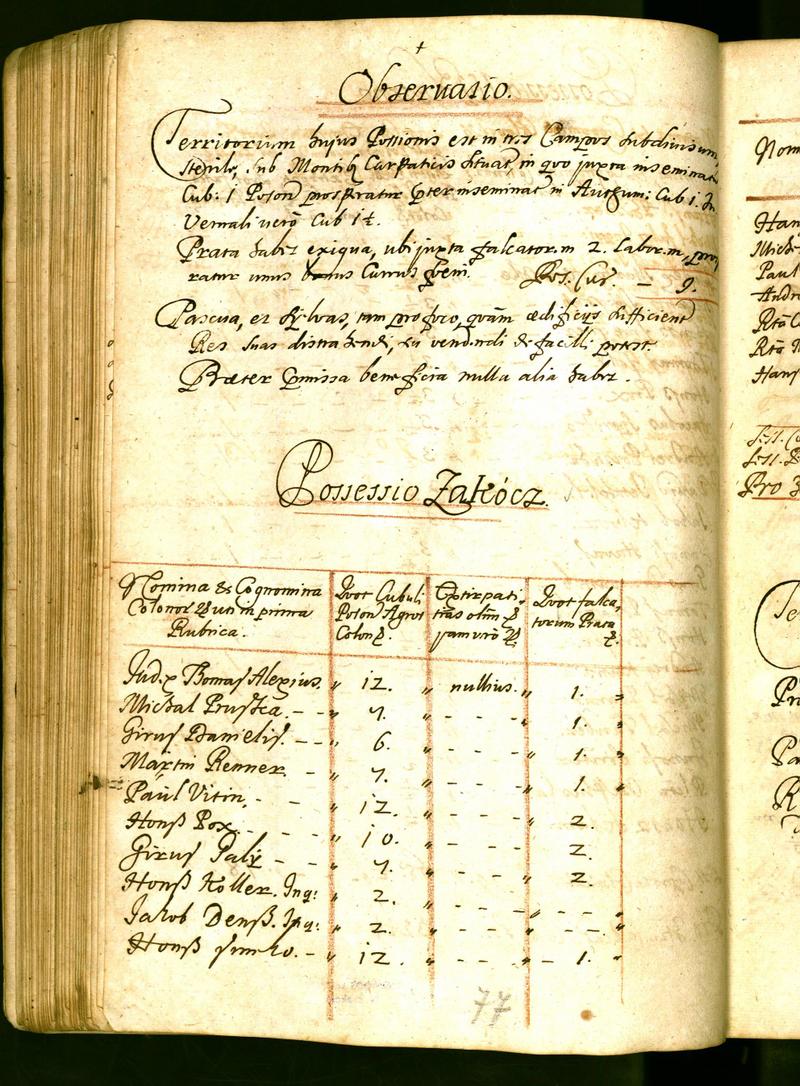 Observatio.
Territorium hujus Possionis est in tres Campos subdivisum,
sterile, sub Montibq Carpaticis situat, in quo juxta inseminat
Cub: 1 Poson prosperatur Præter inseminat in Autumn: Cub 1. In
Vernali verò Cub 1½.
Prata habet exiqua, ubi juxta falcator.m 2. Labor.m,
ratur unus Currus fœni. Pos. Cur. – 9.
Pascua, et Sylvas, tam pro foco, quàm ædificijs sufficient
Res suas distrahendi, et vendendi de facili potest.
Præter præmissa beneficia nulla alia habet.
Possessio Zakócz.
Nomina & Cognomina
Colonor ut in prima
Rubrica.
Quot Cubuli
Poson Agros
Colon
Extirpati-
tias olim
jam verò
Quot falca-
torum Prata
Jud.x Thomas Alexius. " 12. " nullius. " 1. "
Michal Pruska. – – " 7. " – – – " 1. "
Girus Danielis. – – " 6. " – – – " 1. "
Martin Renner. – " 7. " – – – " 1. "
Paul Vitin. – – " 12. " – – – " 2.
Honß Pox. – – – " 10. " – – – " 2.
Girus Paly – – " 7. " – – – " 2.
Honß Koller. Inq: " 2. " – – – " – – "
Jakob Denß. Inq: " 2. " – – – " – –. "
Honß Simko. – " 12. " – – – " – 1. "
77
Nom
Han
Mich
Paul
Andr
Han
Pro
Te
Pr
Pa
R